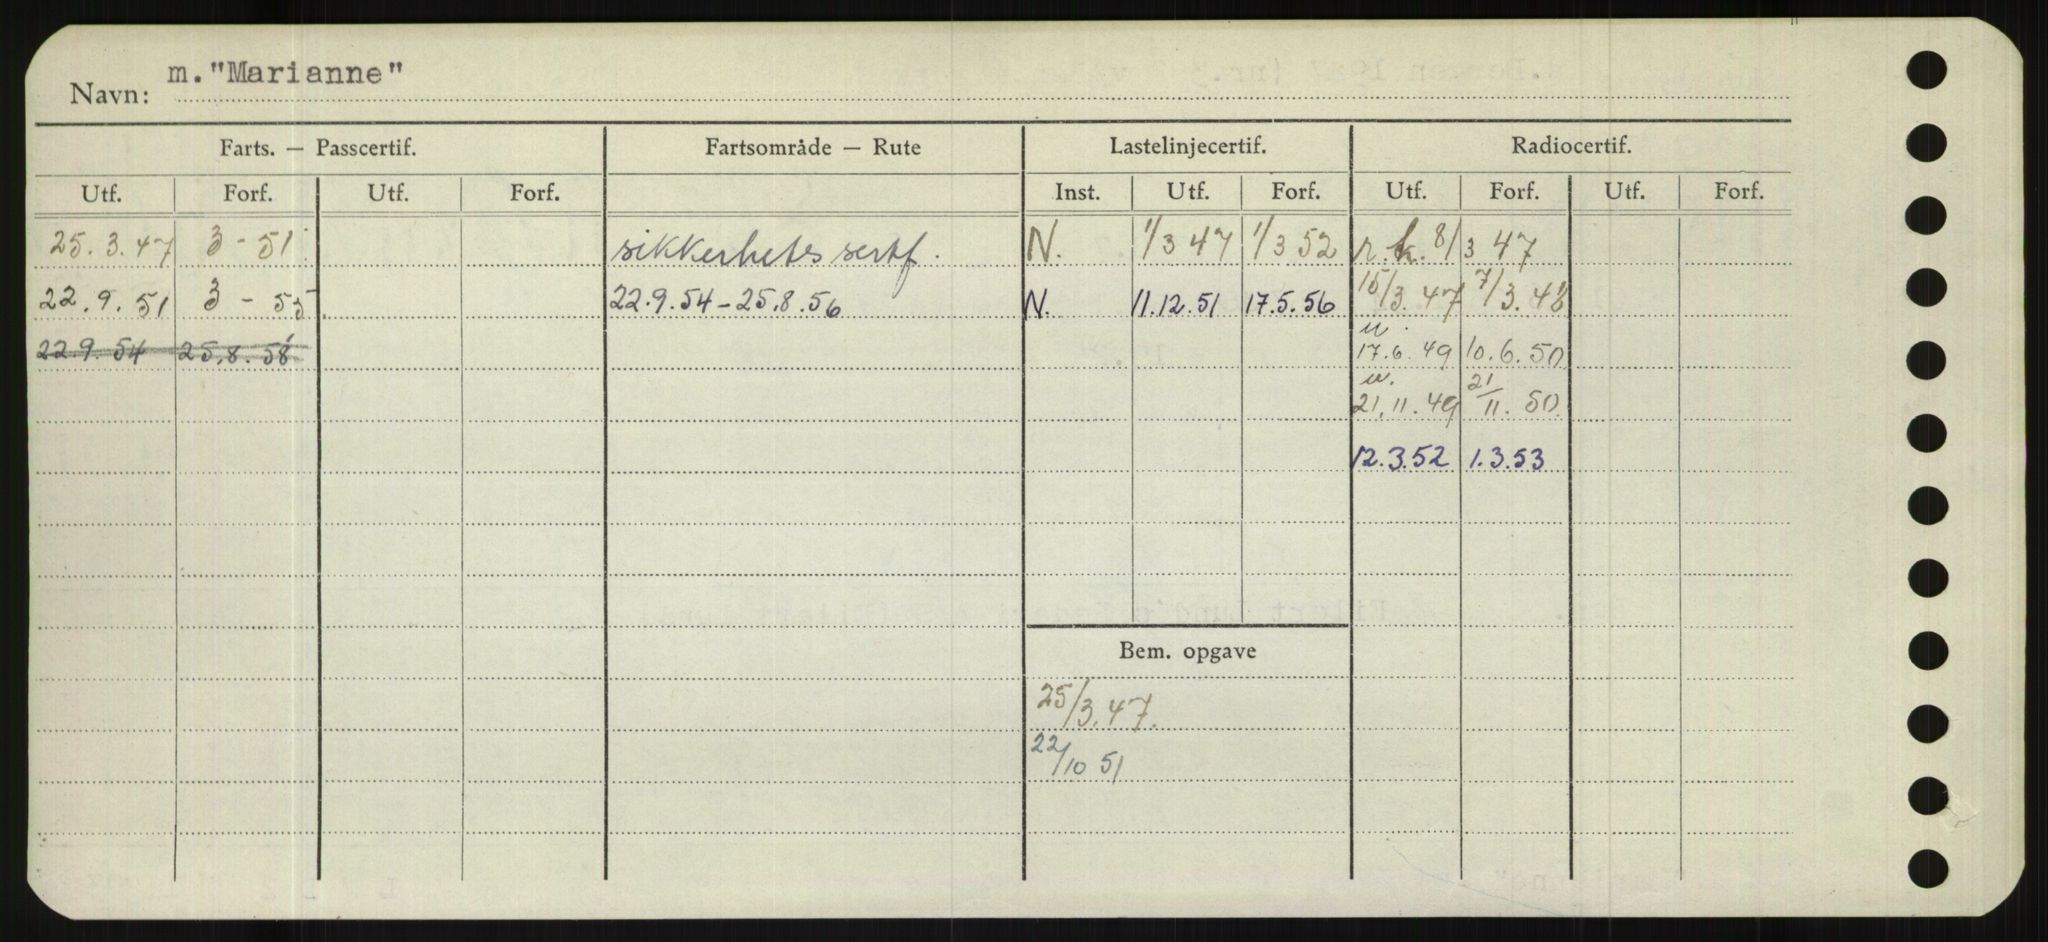 Navn: m."Marianne"
Farts. — Passcertif. Fartsområde — Rute Lastelinjecertif. Radiocertif.
Utf. Forf. Utf. Forf. Inst. Utf. Forf. Utf. Forf. Utf. Forf.
25.3.47 3 - 51 sikkerhets sertf. N. 1/3 47 1/3 52 r.k. 8/3 47
22.9.51 3 - 53 22.9.54 - 25.8.56 N. 11.12.51 17.5.56 15/3.47 7/3.48
22.9.54 25.8.58 17.6.49 10.6.50
21.11.49 21/11.50
12.3.52 1.3.53
Bem. opgave
25/3.47.
22/10 51